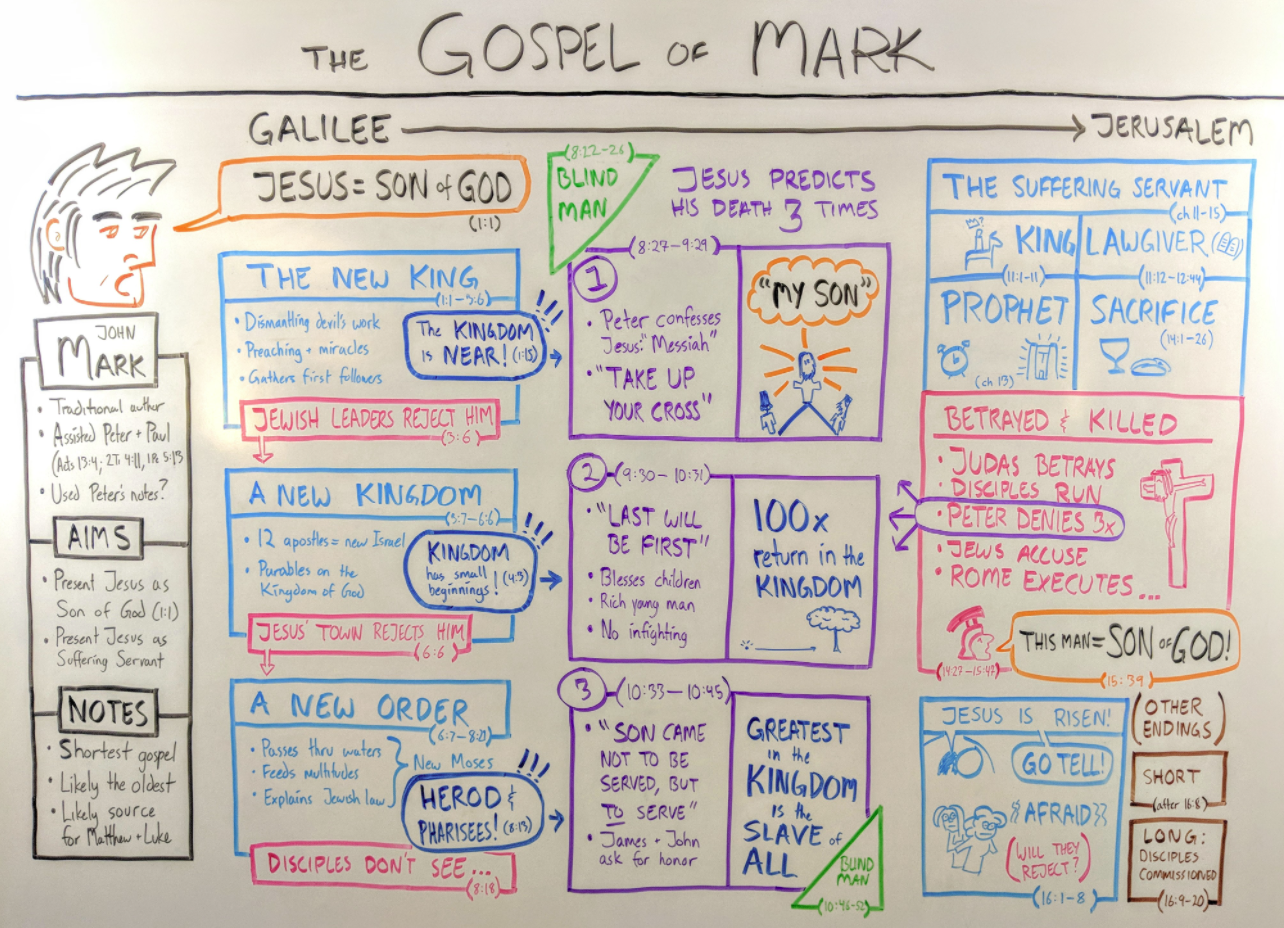 THE GOSPEL OF MARK
GALILEE
JERUSALEM
JESUS = SON of GOD
(1:1)
JOHN
MARK
• Traditional author
• Assisted Peter + Paul
(Acts 13:4; 2Ti 4:11, 1Pe 5:13
• Used Peter's notes?
AIMS
• Present Jesus as
Son of God (1:1)
• Present Jesus as
Suffering Servant
NOTES
• Shortest gospel
• Likely the oldest
• Likely source
for Matthew + Luke
THE NEW KING
(1:1-3:6)
• Dismantling devil's work
• Preaching + miracles
• Gathers first followers
The KINGDOM
is NEAR! (1:15)
!!!
JEWISH LEADERS REJECT HIM
(3:6)
A NEW KINGDOM
(3:7-6:6)
• 12 apostles = new Israel
• Parables on the
Kingdom of God
KINGDOM
has small
beginnings! (4:3)
!!!
JESUS' TOWN REJECTS HIM
(6:6)
A NEW ORDER
(6:7-8:21)
• Passes thru waters
• Feeds multitudes
• Explains Jewish law
New Moses
HEROD &
PHARISEES! (8:15)
!!!
DISCIPLES DON'T SEE...
(8:18)
(8:22-26)
BLIND
MAN
JESUS PREDICTS
HIS DEATH 3 TIMES
(8:27-9:29)
1
• Peter confesses
Jesus: "Messiah"
• "TAKE UP
YOUR CROSS"
"MY SON"
2
(9:30-10:31)
• "LAST WILL
BE FIRST"
• Blesses children
• Rich young man
• No infighting
100x
return in the
KINGDOM
3
(10:33-10:45)
• "SON CAME
NOT TO BE
SERVED, BUT
TO SERVE"
• James + John
ask for honor
GREATEST
in the
KINGDOM
is the
SLAVE of
ALL
BLIND
MAN
(10:46-52)
THE SUFFERING SERVANT
(ch 11-15)
KING
(11:1-11)
LAWGIVER
(11:12-12:44)
PROPHET
(ch 13)
SACRIFICE
(14:1-26)
BETRAYED & KILLED
• JUDAS BETRAYS
• DISCIPLES RUN
• PETER DENIES 3x
• JEWS ACCUSE
• ROME EXECUTES...
(14:27-15:47)
THIS MAN = SON OF GOD!
(15:39)
JESUS IS RISEN!
GO TELL!
AFRAID
(WILL THEY
REJECT?)
(16:1-8)
(OTHER
ENDINGS)
SHORT
(after 16:8)
LONG:
DISCIPLES
COMMISSIONED
(16:9-20)